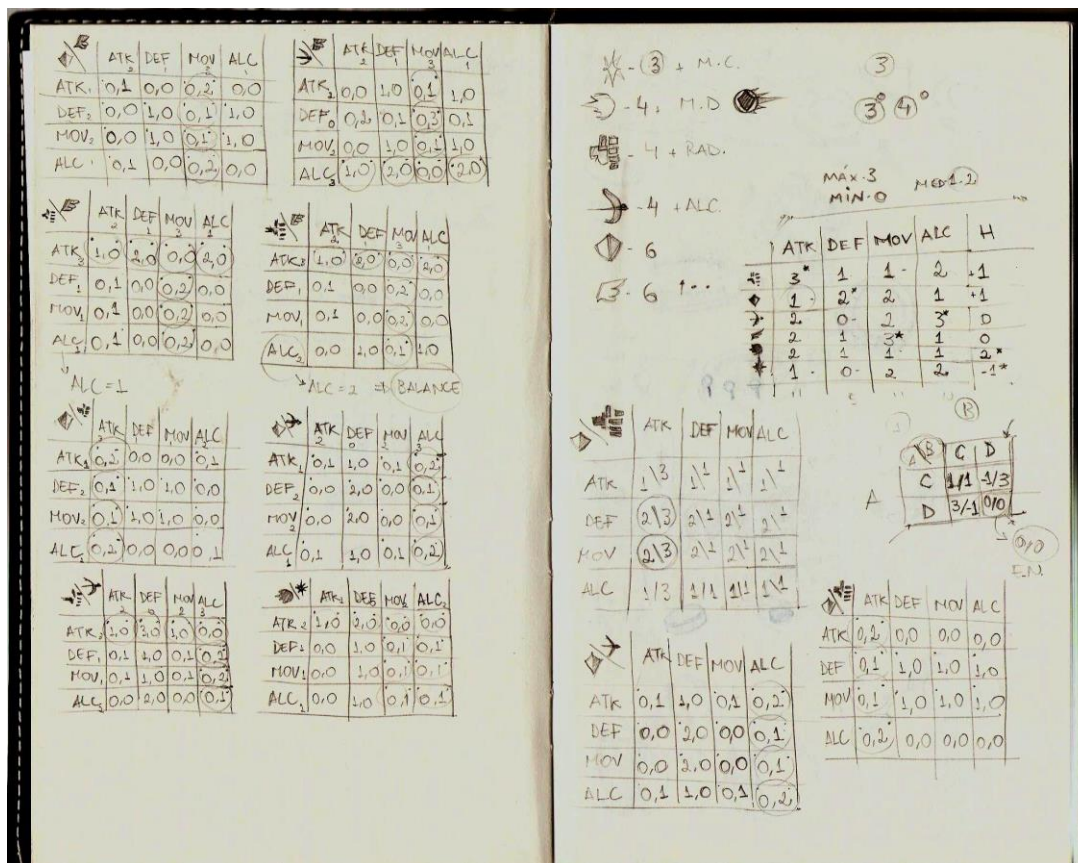 ATK₂ DEF₁ MOV₃ ALC₁
ATK₁ 0,1 0,0 0,2 0,0
DEF₂ 0,0 1,0 0,1 1,0
MOV₂ 0,0 1,0 0,1 1,0
ALC₁ 0,1 0,0 0,2 0,0
ATK₂ DEF₁ MOV₃ ALC₁
ATK₂ 0,0 1,0 0,1 1,0
DEF₀ 0,2 0,1 0,3 0,1
MOV₂ 0,0 1,0 0,1 1,0
ALC₃ 1,0 2,0 0,0 2,0
ATK₂ DEF₁ MOV₃ ALC₁
ATK₃ 1,0 2,0 0,0 2,0
DEF₁ 0,1 0,0 0,2 0,0
MOV₁ 0,1 0,0 0,2 0,0
ALC₁ 0,1 0,0 0,2 0,0
ALC=1
ATK₂ DEF₁ MOV₃ ALC₁
ATK₃ 1,0 2,0 0,0 2,0
DEF₁ 0,1 0,0 0,2 0,0
MOV₁ 0,1 0,0 0,2 0,0
ALC₂ 0,0 1,0 0,1 1,0
ALC=2 ⇒ BALANCE
ATK₃ DEF₁ MOV₁ ALC₂
ATK₁ 0,2 0,0 0,0 0,1
DEF₂ 0,1 1,0 1,0 0,0
MOV₂ 0,1 1,0 1,0 0,0
ALC₁ 0,2 0,0 0,0 0,1
ATK₂ DEF₀ MOV₂ ALC₃
ATK₁ 0,1 1,0 0,1 0,2
DEF₂ 0,0 2,0 0,0 0,1
MOV₂ 0,0 2,0 0,0 0,1
ALC₁ 0,1 1,0 0,1 0,2
ATK₂ DEF₀ MOV₂ ALC₃
ATK₃ 1,0 3,0 1,0 0,0
DEF₁ 0,1 1,0 0,1 0,2
MOV₁ 0,1 1,0 0,1 0,2
ALC₂ 0,0 2,0 0,0 0,1
ATK₁ DEF₀ MOV₂ ALC₂
ATK₂ 1,0 2,0 0,0 0,0
DEF₁ 0,0 1,0 0,1 0,1
MOV₁ 0,0 1,0 0,1 0,1
ALC₁ 0,0 1,0 0,1 0,1
- 3 + M.C.
- 4 + M.D
- 4 + RAD.
- 4 + ALC.
- 6
- 6 ↑··
3
3° 4°
MÁX-3
MIN-0
MED-1.2
ATK DEF MOV ALC H
3* 1 1- 2 +1
1 2* 2 1 +1
2 0- 2 3* 0
2 1 3* 1 0
2 1 1- 1 2*
1- 0- 2 2 -1*
ATK DEF MOV ALC
ATK 1\3 1\1 1\1 1\1
DEF 2\3 2\1 2\1 2\1
MOV 2\3 2\1 2\1 2\1
ALC 1/3 1/1 1/1 1\1
B
A\B C D
A
C 1/1 -1/3
D 3/-1 0/0
0/0
E.N.
ATK DEF MOV ALC
ATK 0,1 1,0 0,1 0,2
DEF 0,0 2,0 0,0 0,1
MOV 0,0 2,0 0,0 0,1
ALC 0,1 1,0 0,1 0,2
ATK DEF MOV ALC
ATK 0,2 0,0 0,0 0,0
DEF 0,1 1,0 1,0 1,0
MOV 0,1 1,0 1,0 1,0
ALC 0,2 0,0 0,0 0,0